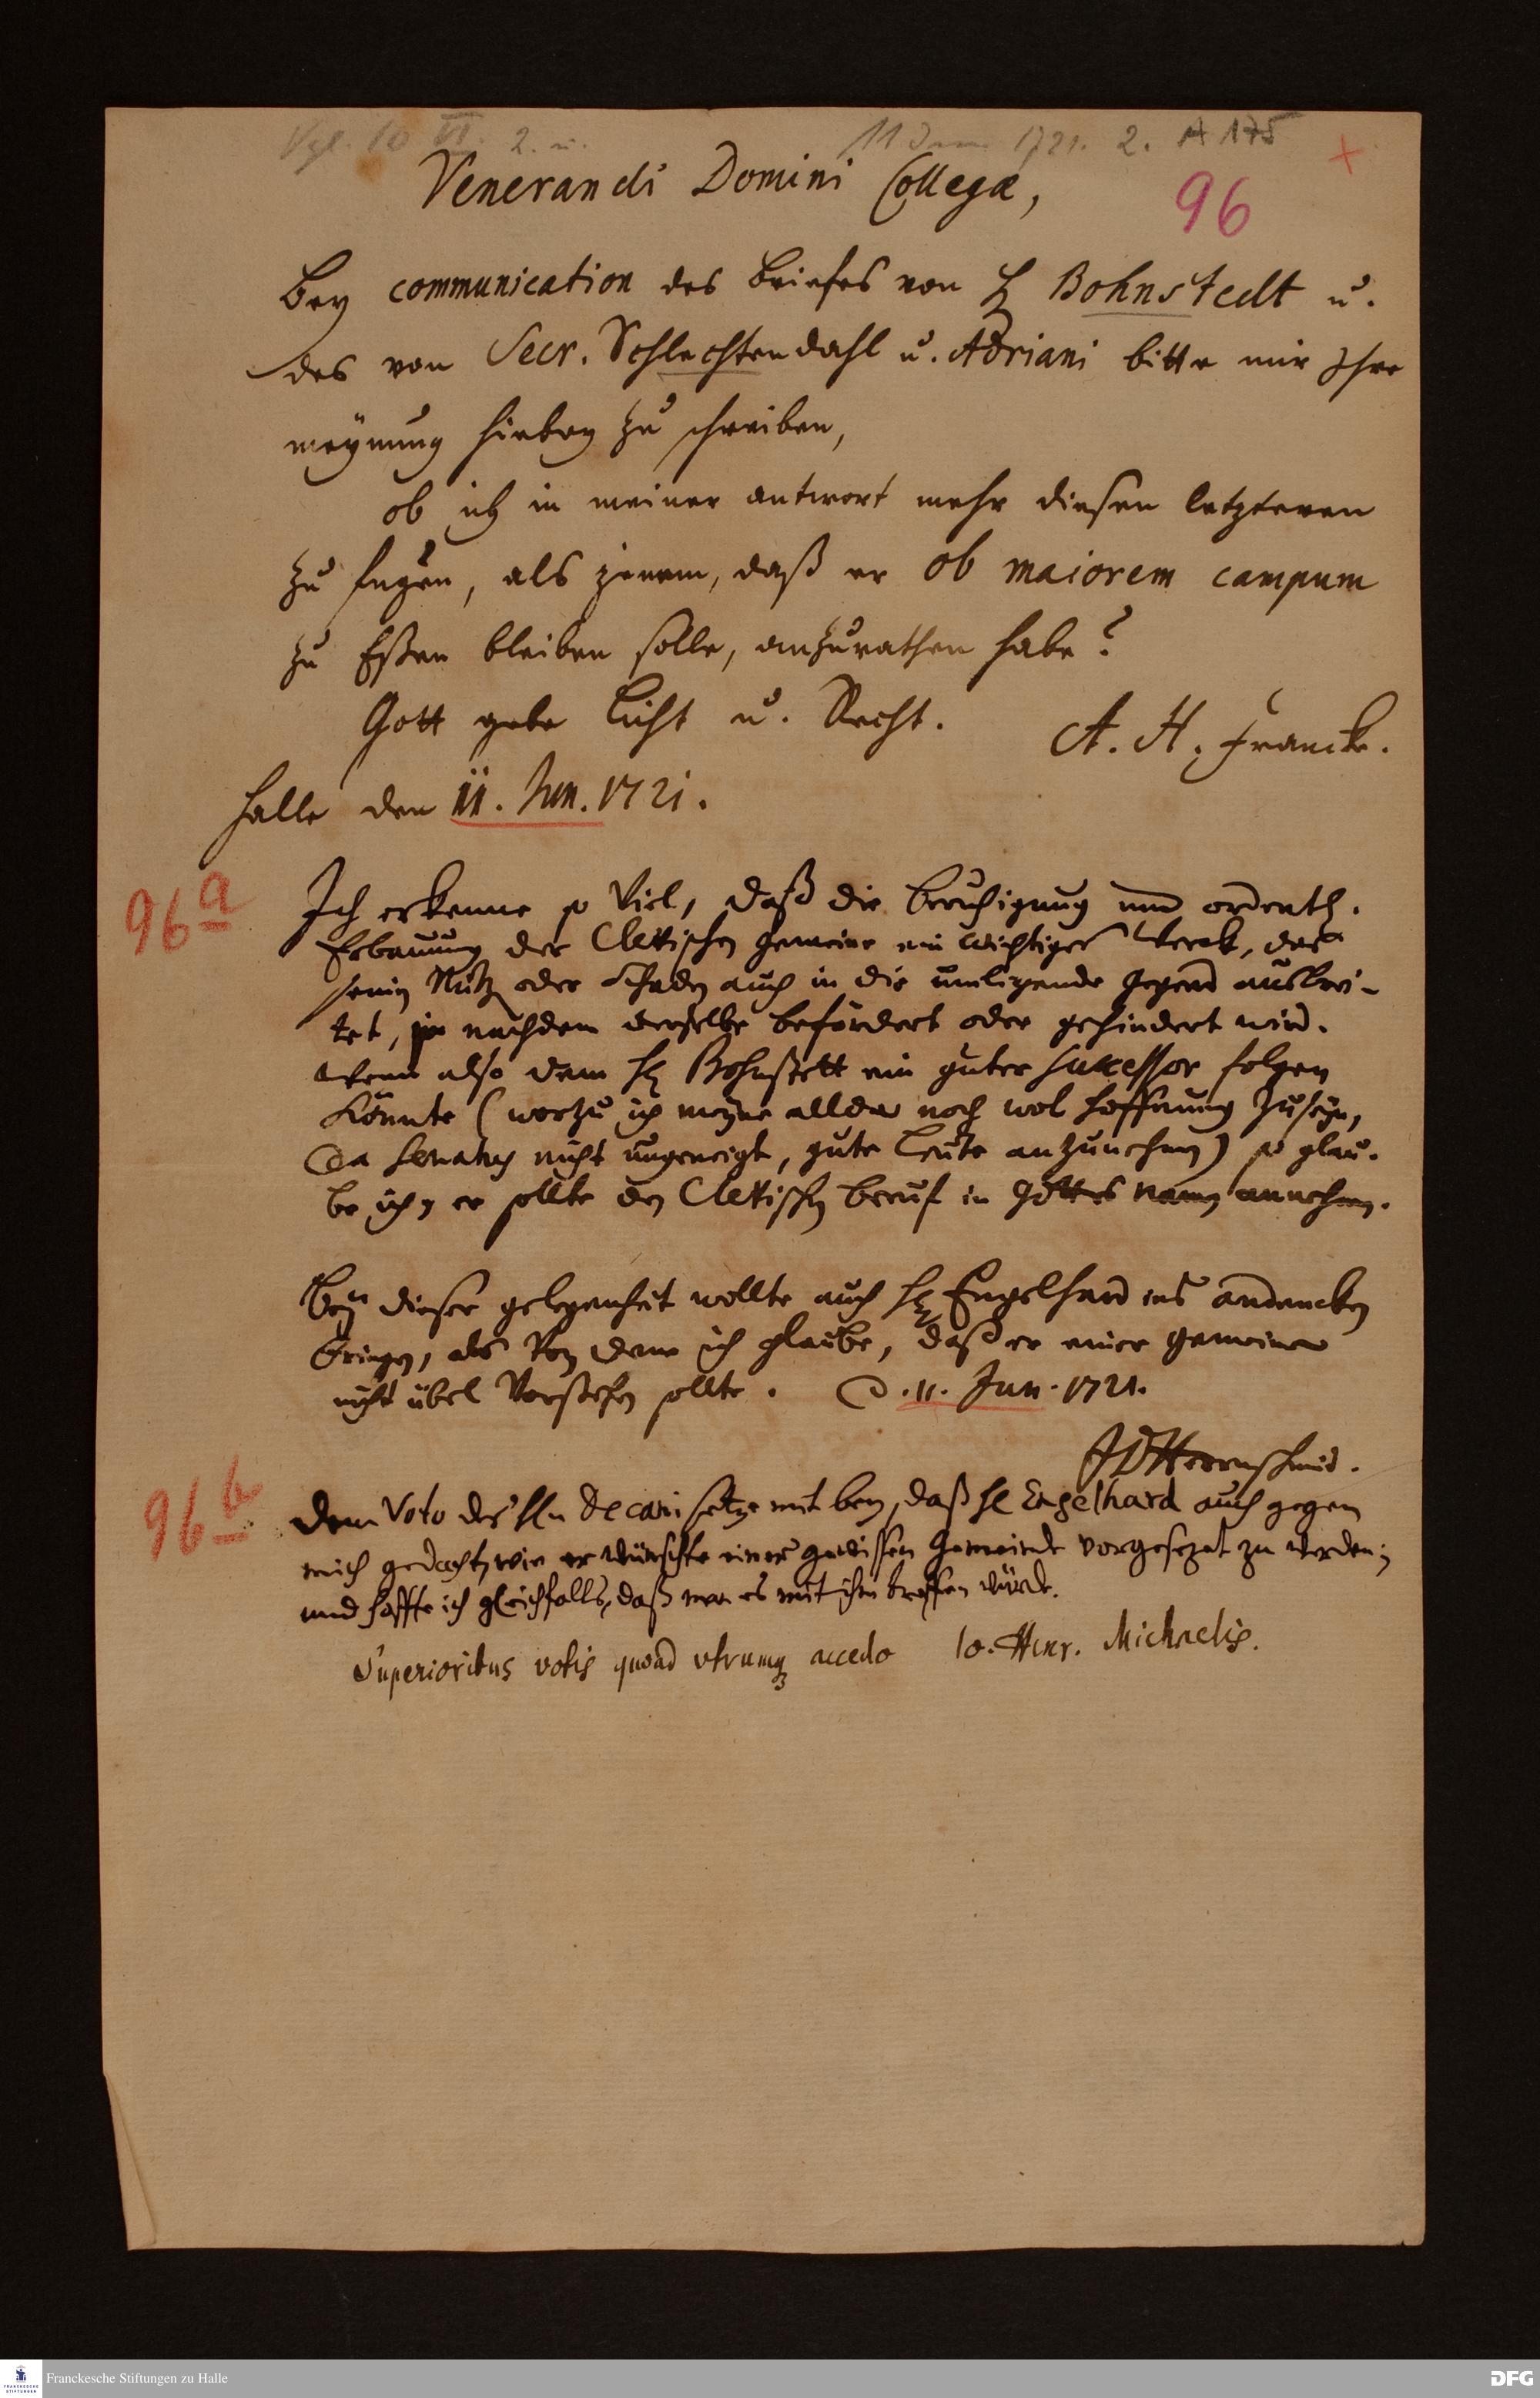 Vgl. 10 VI. 2. u. 11 Jun 1721. 2. A 175
Venerandi Domini Collegæ,
96
bey communication des briefes von H Bohnstedt u.
des von Secr. Schlechtendahl u. Adriani bitte mir Ihre
meÿnung hiebey zu schreiben,
ob ich in meiner antwort mehr diesen letzteren
zu fugen, als jenem, daß er ob maiorem campum
zu Eßen bleiben solle, anzurathen habe?
Gott gebe Licht u. Recht. A. H. Francke.
Halle den 11. Jun. 1721.
96a
Ich erkenne so viel, daß die beruhigung und ordentl.
Erbauung der Clevischen gemeine ein wichtiges Werck, das
seinen Nutz oder Schaden auch in die umligende gegend ausbrei-
tet, je nachdem derselbe befördert oder gehindert wird.
Wenn also dem H Bohnstett ein guter Successor folgen
könnte (worzu ich meyne allda noch wol hoffnung zu seyn,
da Senatus nicht ungeneigt, gute Leute anzunehmen) so glau-
be ich, er sollte den Clevischen beruf in Gottes namen annehmen.
Bey dieser gelegenheit wollte auch H Engelhard ins andencken
bringen, als von dem ich glaube, daß er einer gemeine
nicht übel vorstehen sollte. d. 11. Jun. 1721.
JDHerrnschmid.
96b
Dem Voto des Hn Decani setze mit bey, daß H Engelhard auch gegen
mich gedacht, wie er wünschte einer gewissen Gemeinde vorgesezet zu werden;
und hoffte ich gleichfalls, daß man es mit ihm treffen würde.
Superioribus votis quoad utrumq accedo Io. Henr. Michaelis.
Franckesche Stiftungen zu Halle
DFG